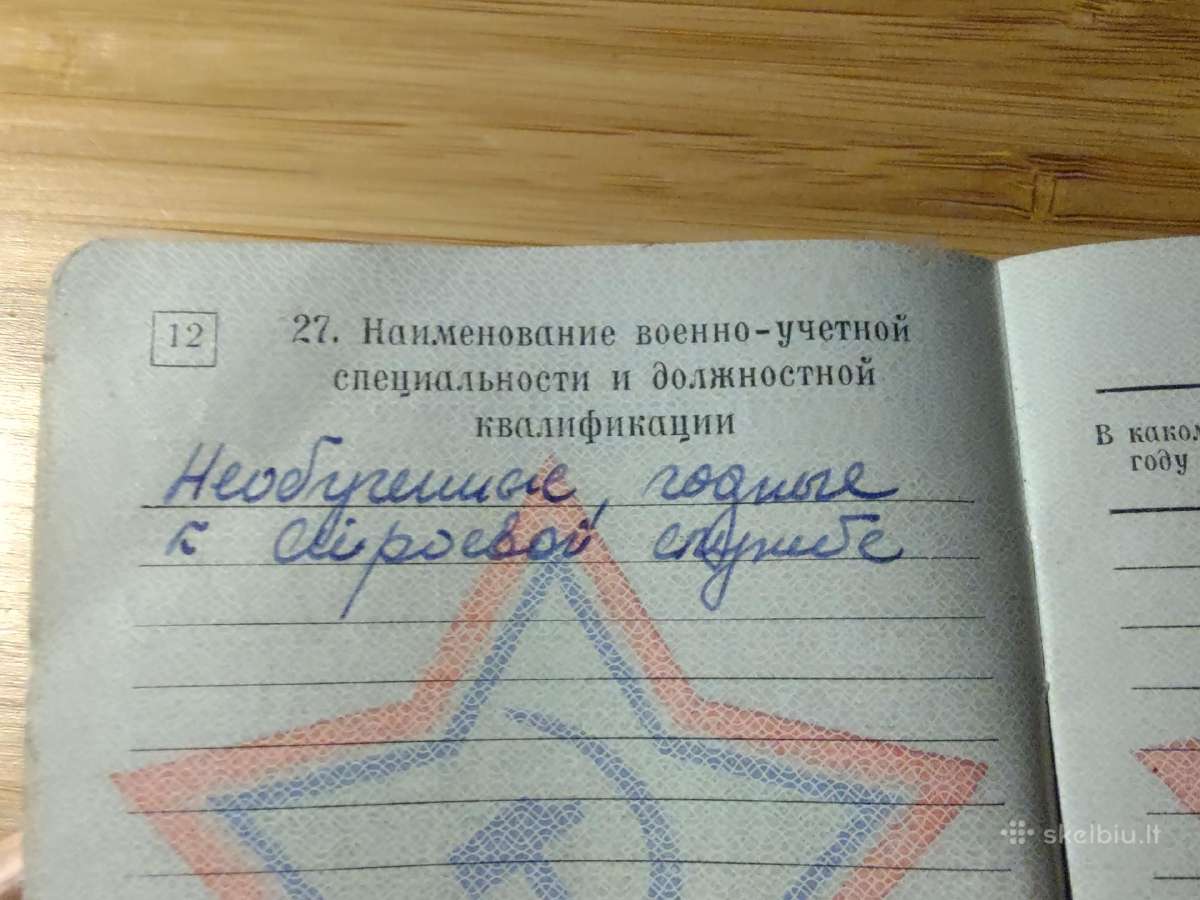 12
27. Наименование военно-учетной
специальности и должностной
квалификации
Необученные, годные
к строевой службе
В каком
году
skelbiu.lt